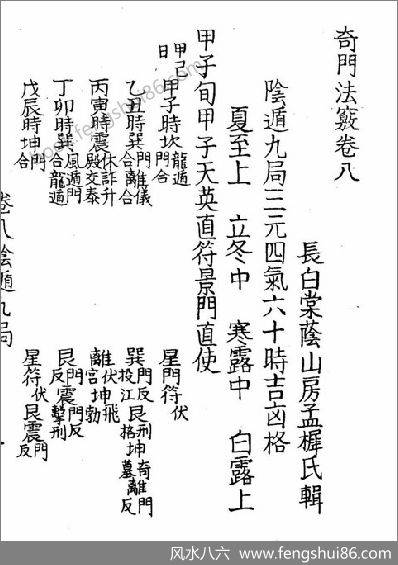 奇門法竅卷八
長白棠蔭山房孟樨氏輯
陰遁九局三元四氣六十時吉凶格
夏至上 立冬中 寒露中 白露上
甲子旬甲子天英直符景門直使
甲己日 甲子時坎龍遁門合 星門符伏
乙丑時巽門合離儀合 巽門反投江艮刑格坤奇墓離門反
丙寅時震休詐升殿交泰 離伏宮坤飛勃
丁卯時巽風遁門合龍遁 艮門反震門反擊刑
戊辰時坤門合 星符伏艮震門反
卷八陰遁九局
www.fengshui86.com
风水八六 www.fengshui86.com